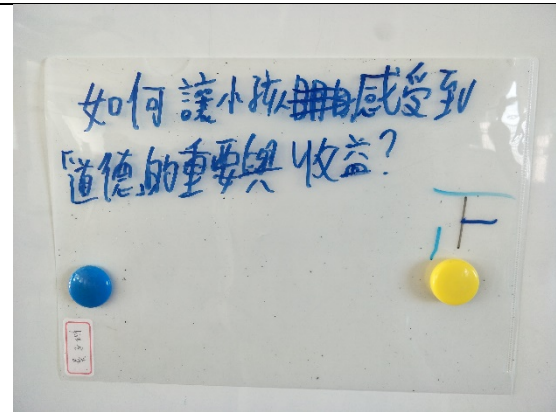 如何讓小孩感受到
「道德」的重要與收益?
正